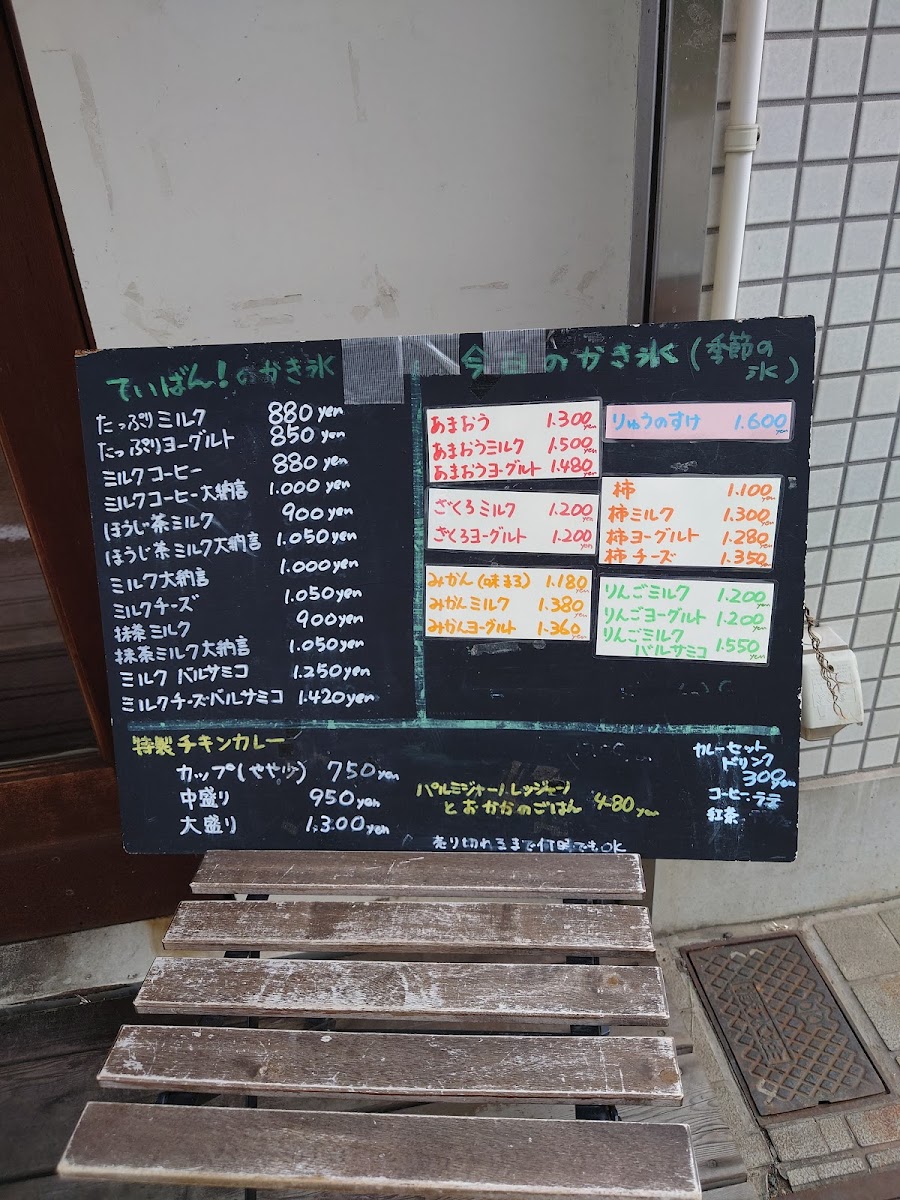 ていばん!のかき氷
たっぷりミルク 880yen
たっぷりヨーグルト 850yen
ミルクコーヒー 880yen
ミルクコーヒー大納言 1.000yen
ほうじ茶ミルク 900yen
ほうじ茶ミルク大納言 1.050yen
ミルク大納言 1.000yen
ミルクチーズ 1.050yen
抹茶ミルク 900yen
抹茶ミルク大納言 1.050yen
ミルク バルサミコ 1.250yen
ミルクチーズ・バルサミコ 1.420yen
今日のかき氷(季節の氷)
あまおう 1.300yen
あまおうミルク 1.500yen
あまおうヨーグルト 1.480yen
ざくろミルク 1.200yen
ざくろヨーグルト 1.200yen
みかん(味まろ) 1.180yen
みかんミルク 1.380yen
みかんヨーグルト 1.360yen
りゅうのすけ 1.600yen
柿 1.100yen
柿ミルク 1.300yen
柿ヨーグルト 1.280yen
柿チーズ 1.350yen
りんごミルク 1.200yen
りんごヨーグルト 1.200yen
りんごミルク
バルサミコ 1.550yen
特製チキンカレー
カップ(やや少) 750yen
中盛り 950yen
大盛り 1.300yen
パルミジャーノ.レッジャーノ
とおかかのごはん 480yen
カレーセット
ドリンク
300yen
コーヒー・ラテ
紅茶
売り切れるまで何時でもOK